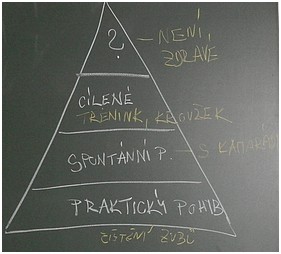 ? – NENÍ
ZDRAVÉ
CÍLENÉ
TRÉNINK, KROUŽEK
SPONTÁNNÍ P. – S KAMARÁDY
PRAKTICKÝ POHYB
ČIŠTĚNÍ ZUBŮ